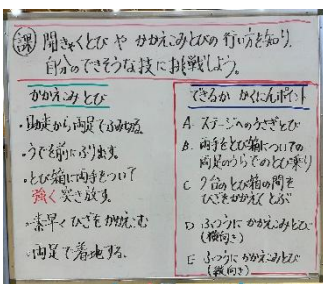 課 開きゃくとび や かかえこみとびの 行い方を知り、
自分のできそうな技に挑戦しよう。
かかえこみとび
・助走から両足でふみきる。
・うでを前にふり出す。
・とび箱に両手をついて
強く突き放す。
・素早くひざをかかえこむ
・両足で着地する。
できるか かくにんポイント
A ステージへのうさぎとび
B 両手をとび箱についての
両足のうらでのとび乗り
C 2台のとび箱の間を
ひざをかかえて とぶ
D ふつうに かかえこみとび
(横向き)
E ふつうに かかえこみとび
(縦向き)